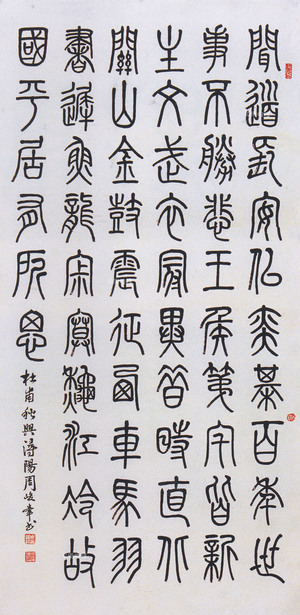 聞道長安似弈棊百年世
事不勝悲王侯第宅皆新
主文武衣冠異昔時直北
關山金鼓震征西車馬羽
書遲魚龍寂寞秋江冷故
國平居有所思
杜甫秋興潯陽周章書